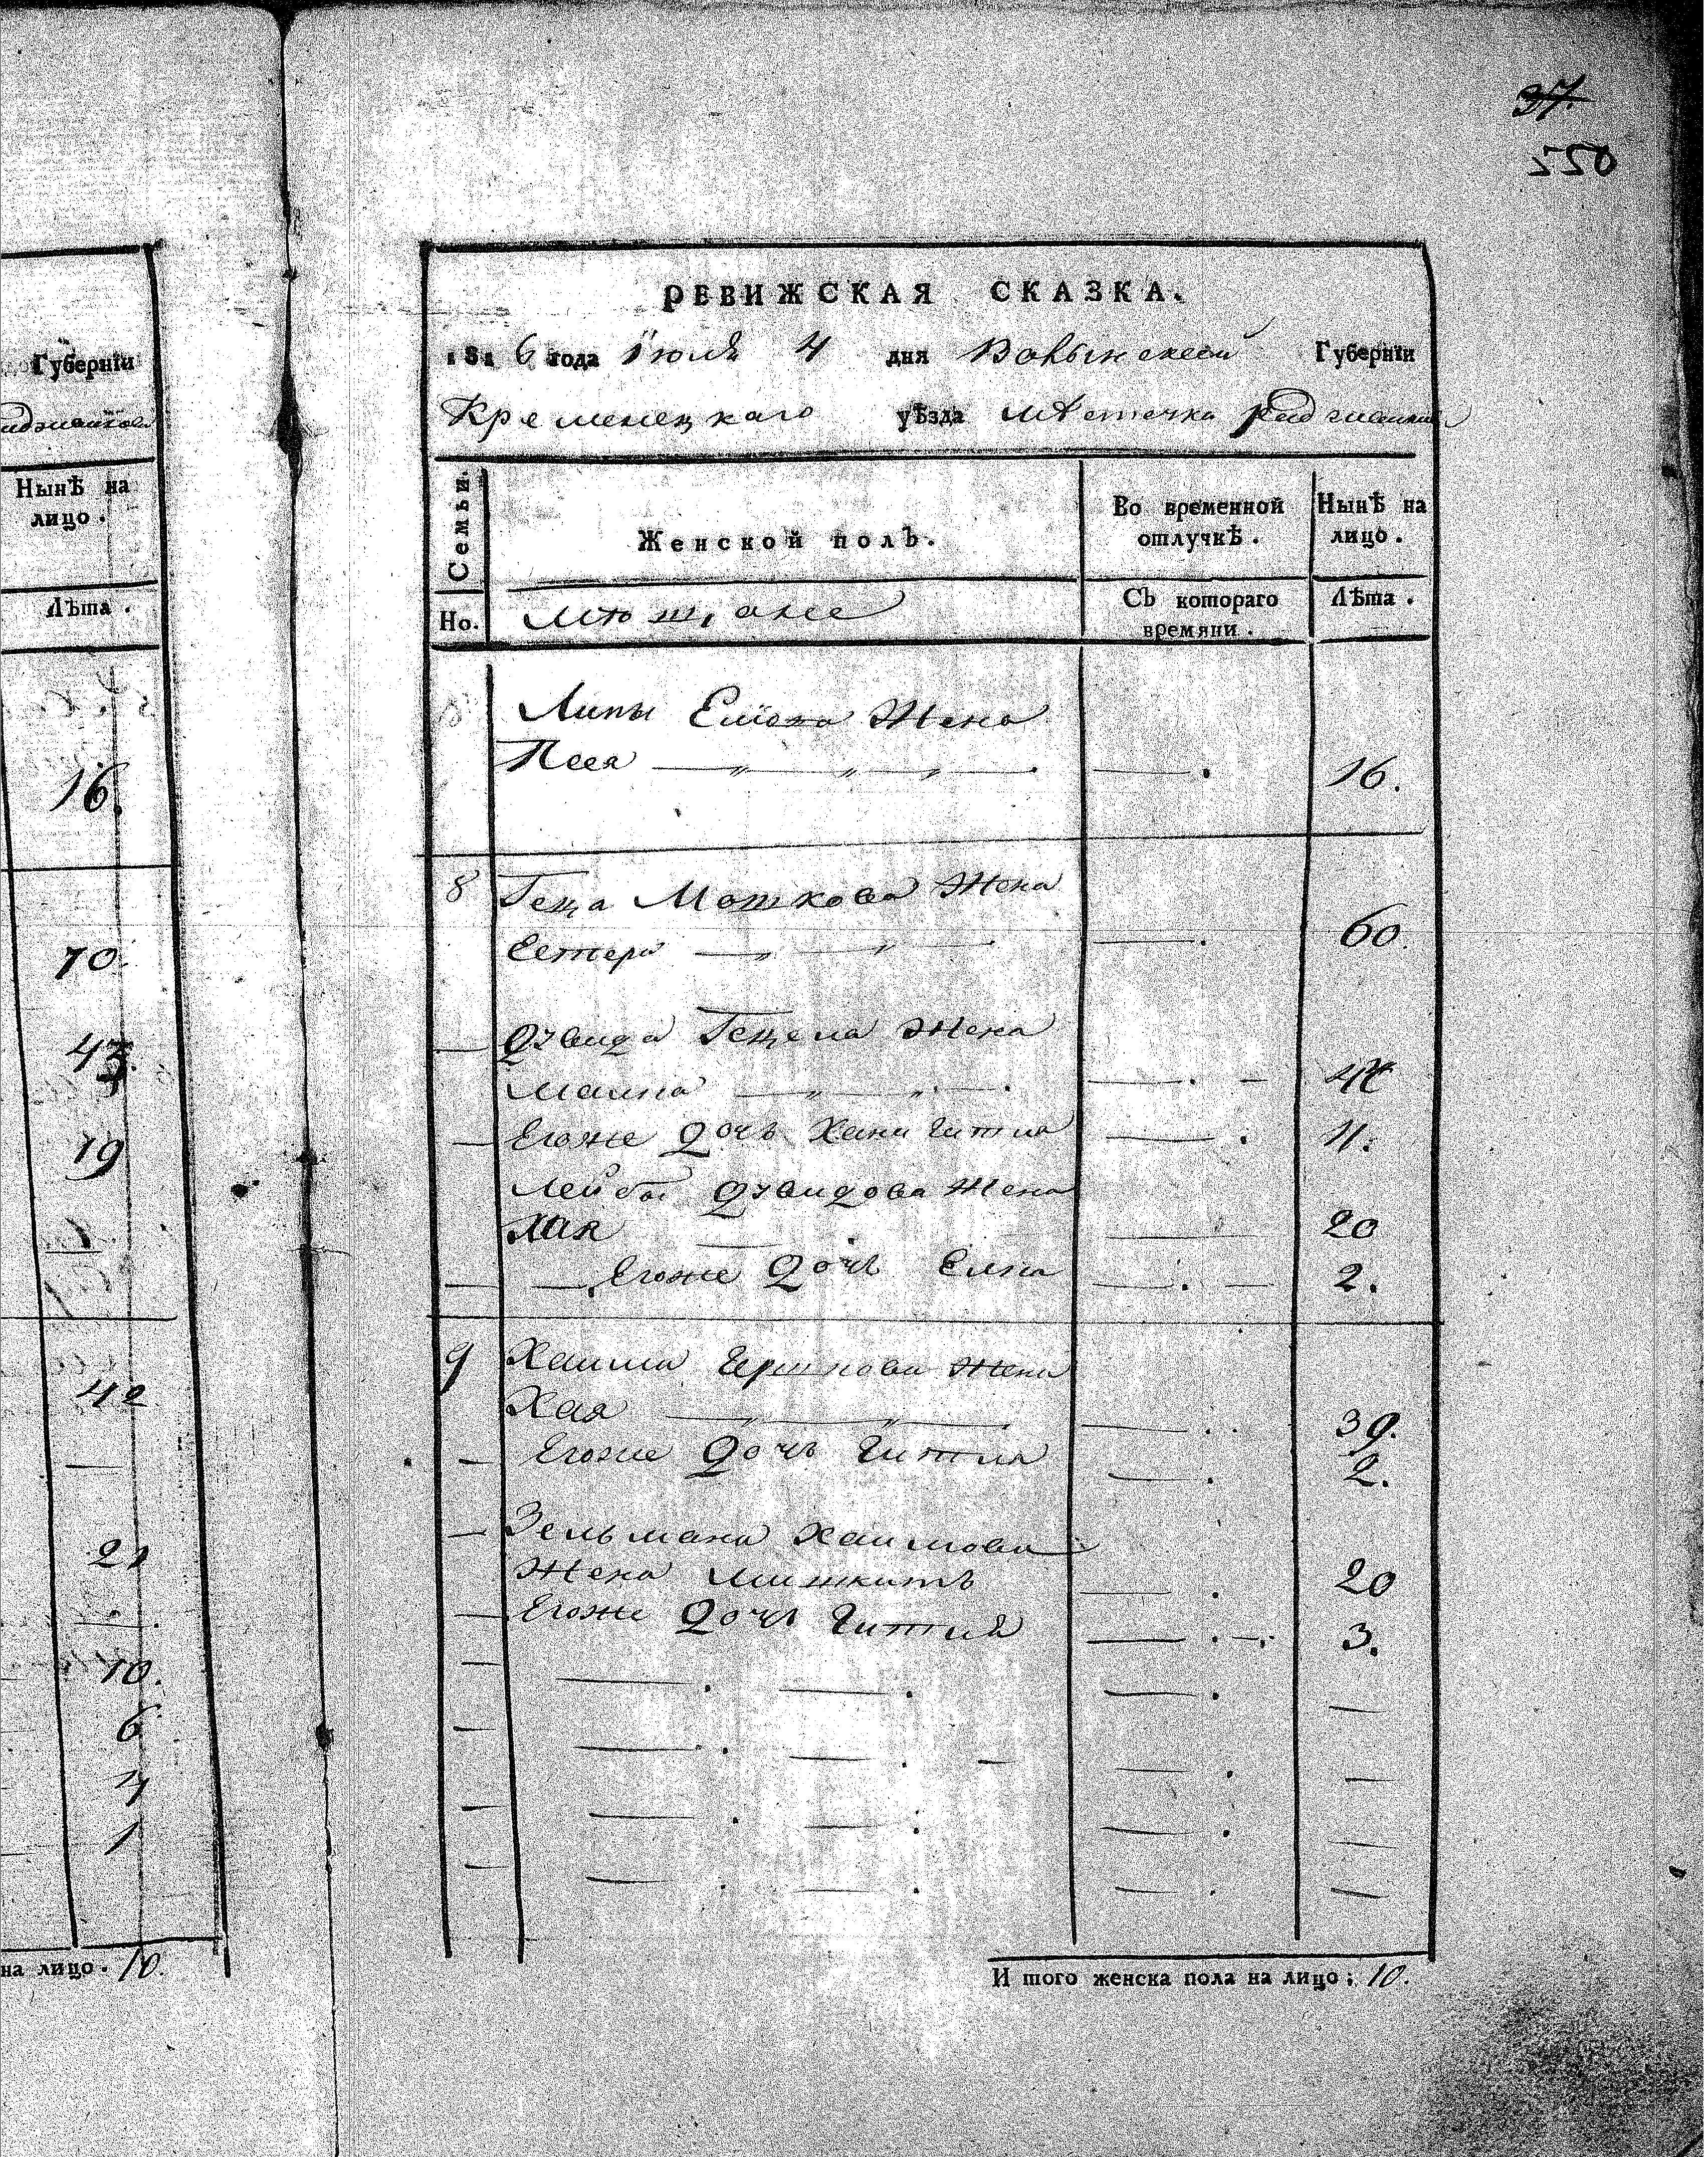 37.
550
Губернїи
Нынѣ на
лицо.
Лѣта.
16.
70.
43.
19
42
21
10.
6
4
1
на лицо. 10.
РЕВИЖСКАЯ СКАЗКА.
1816 года Їюля 4 дня Волынской Губернїи
Кременецкаго уѣзда мѣстечка
Семьи. Женской полъ. Во временной отлучкѣ. Нынѣ на лицо.
Но. Мѣщане Съ котораго времяни. Лѣта.
Липы Жена
Песя 16.
8 Геца Мошкова Жена
Естера 60.
Дувида Гецела Жена
Малка
Егоже Дочь Хана Гитля 11.
Лейбы Дувидова Жена
Хая 20
Егоже Дочь Елка 2.
9 Хаима Гершкова Жена
Хая 39.
Егоже Дочь Гитля 2.
Зельмана Хаимова
Жена 20
Егоже Дочь Гитля 3.
И того женска пола на лицо: 10.